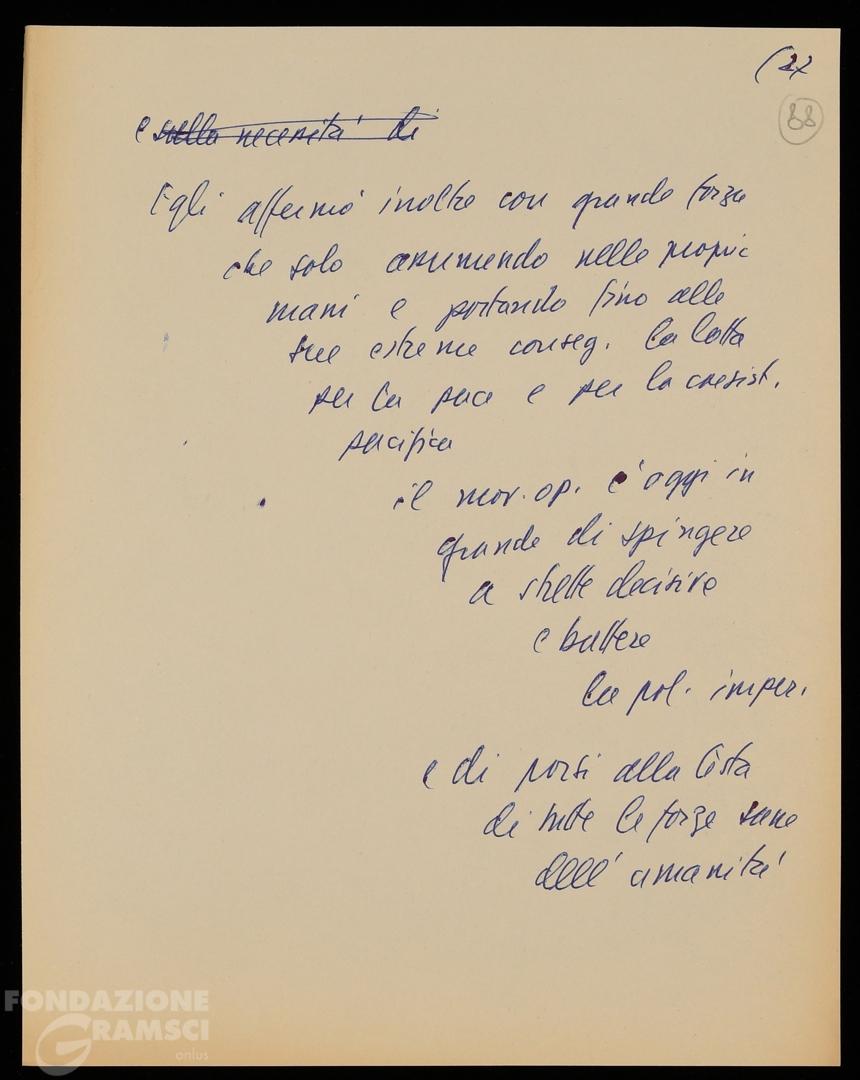 (27
88
e sulla necessità di
Egli affermò inoltre con grande forza
che solo assumendo nelle proprie
mani e portando fino alle
sue estreme conseg. la lotta
per la pace e per la coesist.
pacifica
il mov. op. è oggi in
grande di spingere
a strette decisive
e battere
la pol. imper.
e di porsi alla testa
di tutte le forze sane
dell'umanità
FONDAZIONE
GRAMSCI
onlus